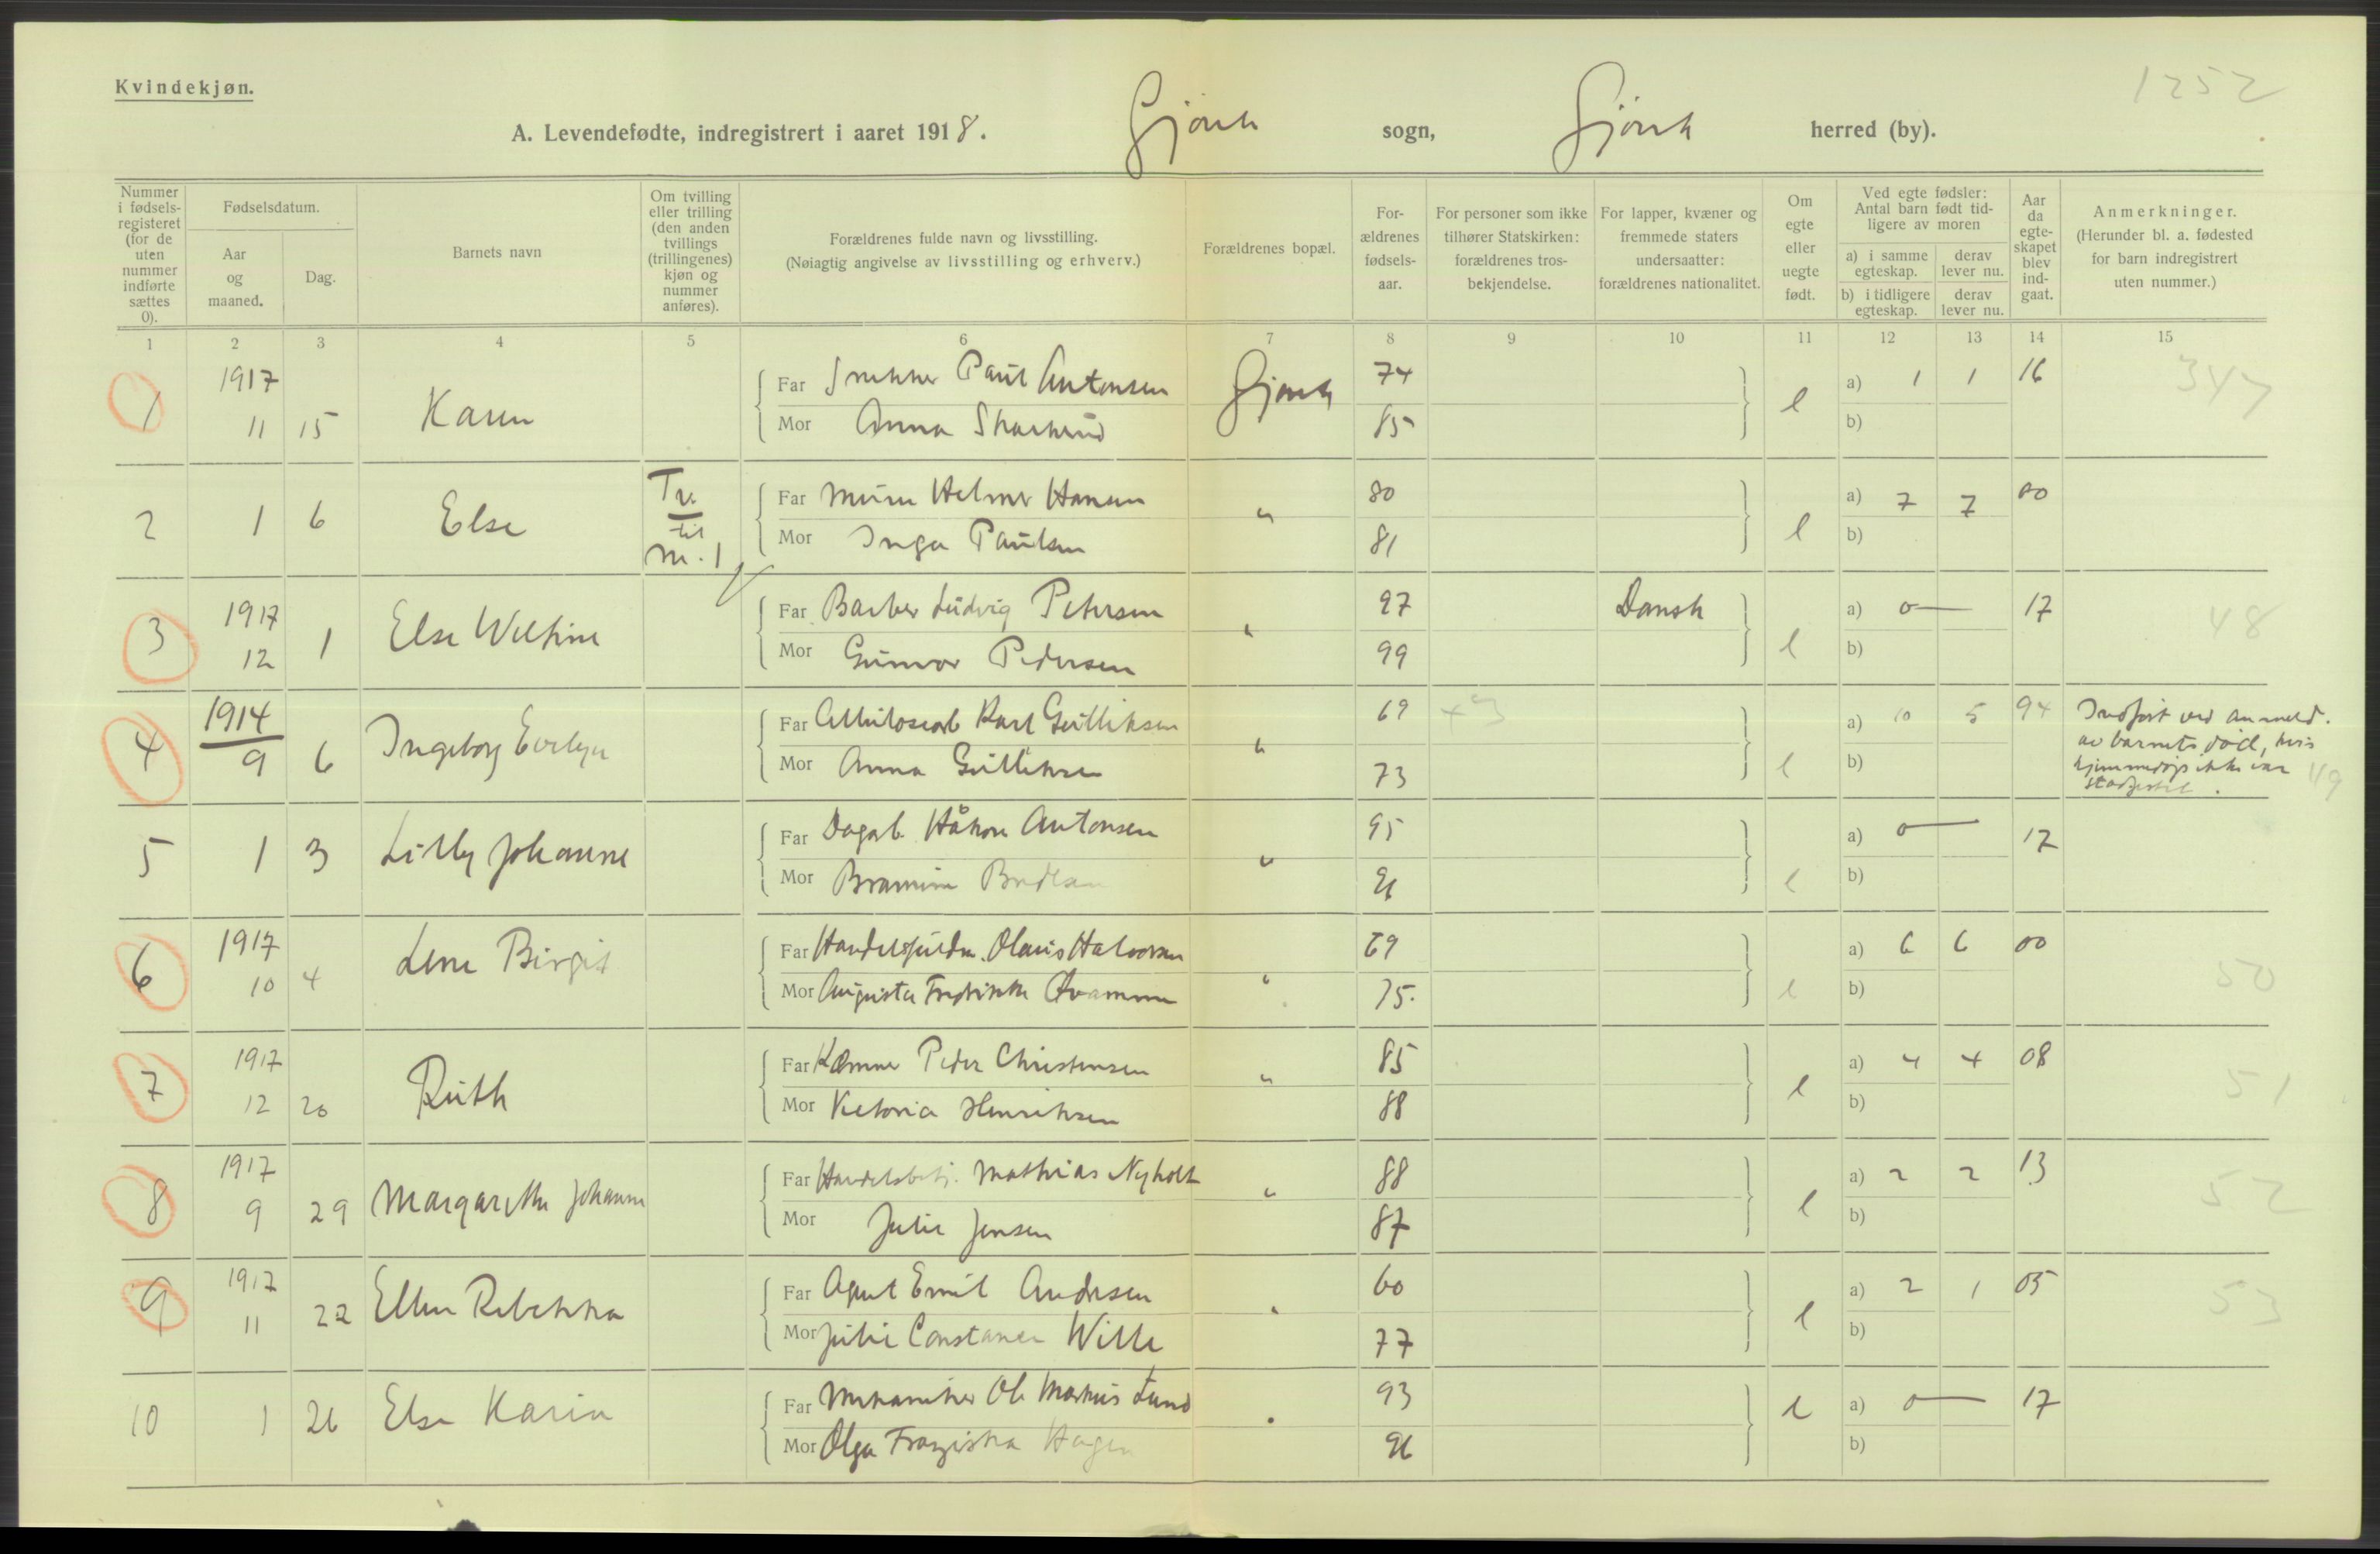 Kvindekjøn.
1252
A. Levendefødte, indregistrert i aaret 1918. Gjövik sogn, Gjövik herred (by).
Nummer i fødsels-registeret (for de uten nummer indførte sættes 0).
Fødselsdatum.
Aar og maaned.
Dag.
Barnets navn
Om tvilling eller trilling (den anden tvillings (trillingenes) kjøn og nummer anføres).
Forældrenes fulde navn og livsstilling.
(Nøiagtig angivelse av livsstilling og erhverv.)
Forældrenes bopæl.
For-ældrenes fødsels-aar.
For personer som ikke tilhører Statskirken: forældrenes tros-bekjendelse.
For lapper, kvæner og fremmede staters undersaatter: forældrenes nationalitet.
Om egte eller uegte født.
Ved egte fødsler: Antal barn født tid-ligere av moren
a) i samme egteskap.
derav lever nu.
b) i tidligere egteskap.
derav lever nu.
Aar da egte-skapet blev ind-gaat.
Anmerkninger.
(Herunder bl. a. fødested for barn indregistrert uten nummer.)
1 2 3 4 5 6 7 8 9 10 11 12 13 14 15
1 1917 11 15 Karen Far Snekker Paul Antonsen Gjövik 74 e a) 1 1 16 347
Mor Anna 85 b)
2 1 6 Else Tv. til m. 1 Far Murer Helmer Hansen " 80 e a) 7 7 00
Mor Inga Paulsen 81 b)
3 1917 12 1 Else Far Barber Ludvig Petersen " 97 Dansk e a) 0 — 17 48
Mor Gunvor Pedersen 99 b)
4 1914 9 6 Ingeborg Evelyn Far Karl Gulliksen " 69 e a) 10 5 94 Indført ved anmeld.
av barnets död, hvis
hjemmedøp ikke var
Mor Anna Gulliksen 73 b)
5 1 3 Lilly Johanne Far Dagarb. Håkon Antonsen " 95 e a) 0 — 17
Mor 96 b)
6 1917 10 4 Lene Birgit Far Olaus Halvorsen " 69 e a) 6 6 00 50
Mor Augusta Fredrikke 75. b)
7 1917 12 20 Ruth Far Peder Christensen " 85 e a) 4 4 08 51
Mor Victoria Henriksen 88 b)
8 1917 9 29 Margarethe Johanne Far Handelsbetj. Mathias Nyholt " 88 e a) 2 2 13 52
Mor Julie Jensen 87 b)
9 1917 11 22 Ellen Rebekka Far Agent Emil Andresen " 60 e a) 2 1 05 53
Mor Julie Constance Wille 77 b)
10 1 26 Else Karin Far Mekaniker Ole Markus Lund " 93 e a) 0 — 17
Mor Olga Franziska Hagen 96 b)